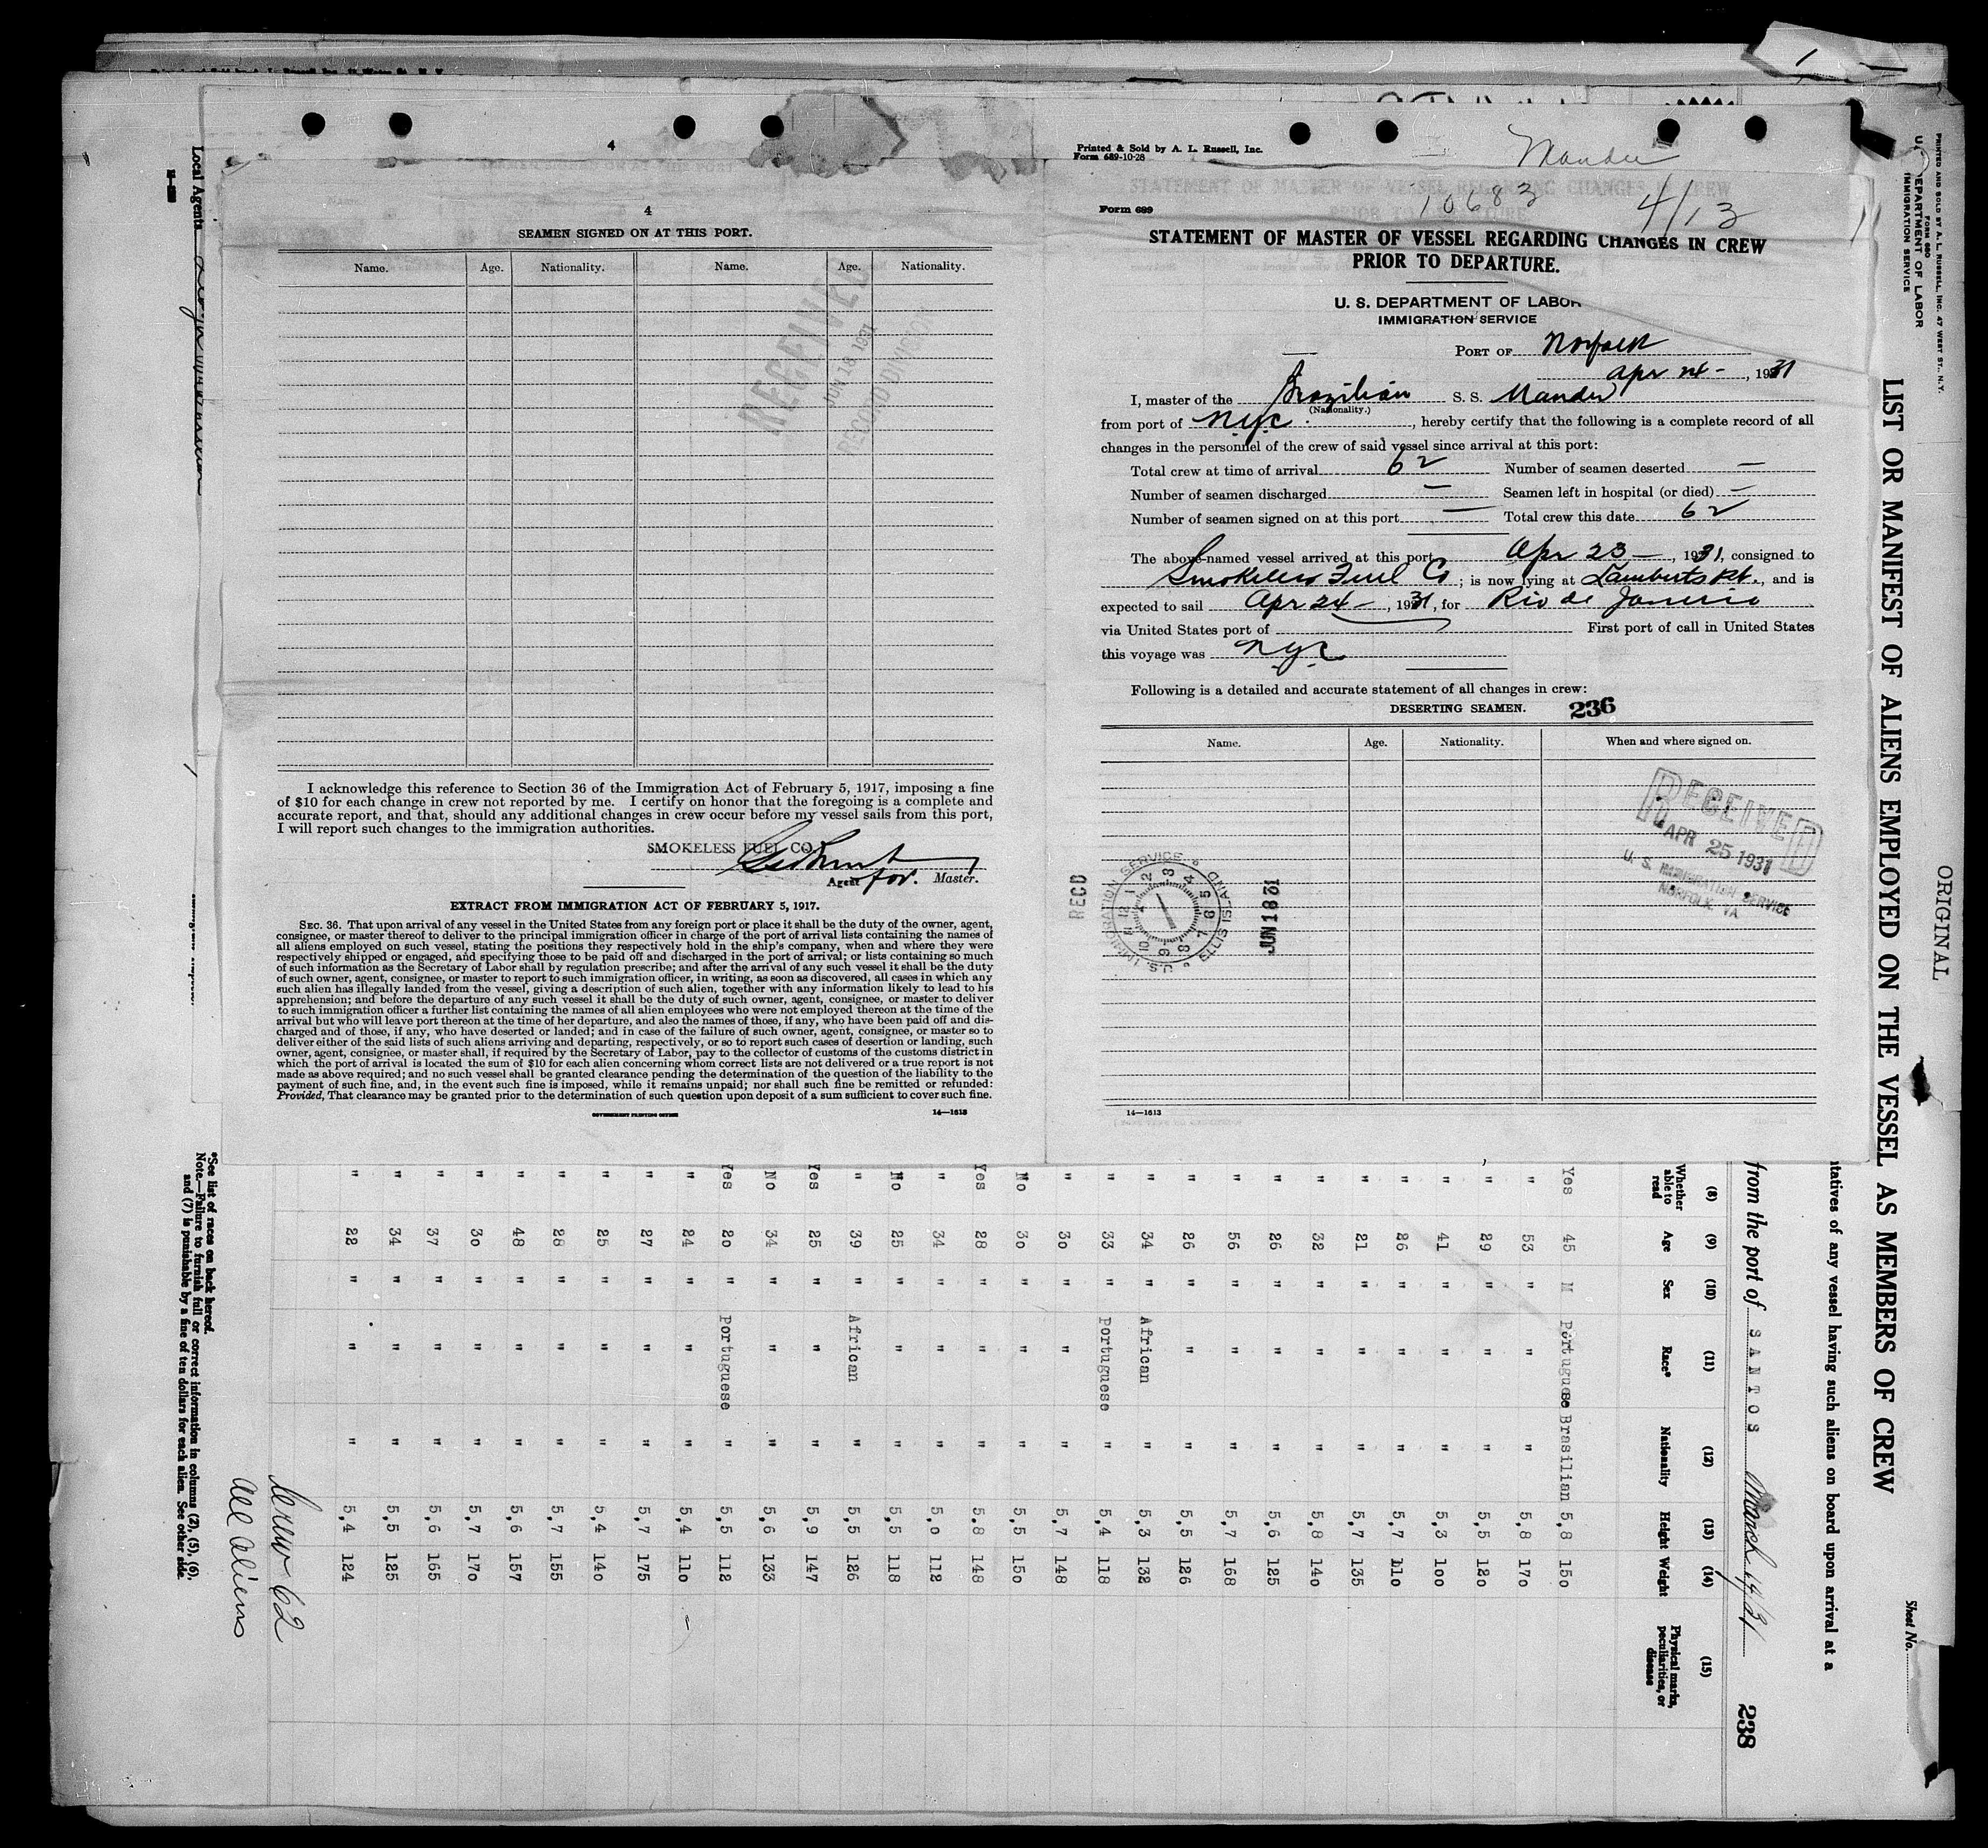 4
4
SEAMEN SIGNED ON AT THIS PORT.
Name. Age. Nationality. Name. Age. Nationality.
RECEIVED
JUN 18 1931
RECORD DIVISION
I acknowledge this reference to Section 36 of the Immigration Act of February 5, 1917, imposing a fine
of $10 for each change in crew not reported by me. I certify on honor that the foregoing is a complete and
accurate report, and that, should any additional changes in crew occur before my vessel sails from this port,
I will report such changes to the immigration authorities.
SMOKELESS FUEL CO.
Agent for. Master.
EXTRACT FROM IMMIGRATION ACT OF FEBRUARY 5, 1917.
SEC. 36. That upon arrival of any vessel in the United States from any foreign port or place it shall be the duty of the owner, agent,
consignee, or master thereof to deliver to the principal immigration officer in charge of the port of arrival lists containing the names of
all aliens employed on such vessel, stating the positions they respectively hold in the ship's company, when and where they were
respectively shipped or engaged, and specifying those to be paid off and discharged in the port of arrival; or lists containing so much
of such information as the Secretary of Labor shall by regulation prescribe; and after the arrival of any such vessel it shall be the duty
of such owner, agent, consignee, or master to report to such immigration officer, in writing, as soon as discovered, all cases in which any
such alien has illegally landed from the vessel, giving a description of such alien, together with any information likely to lead to his
apprehension; and before the departure of any such vessel it shall be the duty of such owner, agent, consignee, or master to deliver
to such immigration officer a further list containing the names of all alien employees who were not employed thereon at the time of the
arrival but who will leave port thereon at the time of her departure, and also the names of those, if any, who have been paid off and dis-
charged and of those, if any, who have deserted or landed; and in case of the failure of such owner, agent, consignee, or master so to
deliver either of the said lists of such aliens arriving and departing, respectively, or so to report such cases of desertion or landing, such
owner, agent, consignee, or master shall, if required by the Secretary of Labor, pay to the collector of customs of the customs district in
which the port of arrival is located the sum of $10 for each alien concerning whom correct lists are not delivered or a true report is not
made as above required; and no such vessel shall be granted clearance pending the determination of the question of the liability to the
payment of such fine, and, in the event such fine is imposed, while it remains unpaid; nor shall such fine be remitted or refunded:
Provided, That clearance may be granted prior to the determination of such question upon deposit of a sum sufficient to cover such fine.
GOVERNMENT PRINTING OFFICE 14—1613
Printed & Sold by A. L. Russell, Inc.
Form 689-10-28
Mandu
10683
4/13
Form 689
STATEMENT OF MASTER OF VESSEL REGARDING CHANGES IN CREW
PRIOR TO DEPARTURE.
U. S. DEPARTMENT OF LABOR
IMMIGRATION SERVICE
PORT OF Norfolk
Apr 24 - , 1931
I, master of the Brazilian S. S. Mandu
(Nationality.)
from port of N.Y.C. , hereby certify that the following is a complete record of all
changes in the personnel of the crew of said vessel since arrival at this port:
Total crew at time of arrival 62 Number of seamen deserted —
Number of seamen discharged — Seamen left in hospital (or died) —
Number of seamen signed on at this port — Total crew this date 62
The above-named vessel arrived at this port Apr 23 — , 1931, consigned to
Smokeless Fuel Co ; is now lying at Lamberts Pt. , and is
expected to sail Apr 24 — , 1931, for Rio de Janeiro
via United States port of First port of call in United States
this voyage was N.Y.C.
Following is a detailed and accurate statement of all changes in crew:
DESERTING SEAMEN. 236
Name. Age. Nationality. When and where signed on.
RECEIVED
APR 25 1931
U. S. IMMIGRATION SERVICE
NORFOLK, VA
RECD
U.S. IMMIGRATION SERVICE ELLIS ISLAND
JUN 18 31
14—1613
PRINTED AND SOLD BY A. L. RUSSELL, INC. 47 WEST ST., N.Y.
FORM 680
DEPARTMENT OF LABOR
IMMIGRATION SERVICE
ORIGINAL
Sheet No.
LIST OR MANIFEST OF ALIENS EMPLOYED ON THE VESSEL AS MEMBERS OF CREW
tatives of any vessel having such aliens on board upon arrival at a
from the port of SANTOS March 19/31
238
(8) (9) (10) (11) (12) (13) (14) (15)
Whether able to read Age Sex Race* Nationality Height Weight Physical marks, peculiarities, or disease
Yes 45 M Portuguese Brasilian 5,8 150
" 53 " " " 5,8 170
" 29 " " " 5,5 120
" 41 " " " 5,3 100
" 26 " " " 5,7 110
" 21 " " " 5,7 135
" 32 " " " 5,8 140
" 26 " " " 5,6 125
" 56 " " " 5,7 168
" 26 " " " 5,5 126
" 34 " African " 5,3 132
" 33 " Portuguese " 5,4 118
" 30 " " " 5,7 148
No 30 " " " 5,5 150
Yes 28 " " " 5,8 148
" 34 " " " 5,0 112
No 25 " " " 5,5 118
" 39 " African " 5,5 126
Yes 25 " " " 5,9 147
No 34 " " " 5,6 133
Yes 20 " Portuguese " 5,5 112
" 24 " " " 5,4 110
" 27 " " " 5,7 175
" 25 " " " 5,4 140
" 28 " " " 5,7 155
" 48 " " " 5,6 157
" 30 " " " 5,7 170
" 37 " " " 5,6 165
" 34 " " " 5,5 125
" 22 " " " 5,4 124
Crew 62
all aliens
*See list of races on back hereof.
Note.—Failure to furnish full or correct information in columns (2), (5), (6),
and (7) is punishable by a fine of ten dollars for each alien. See other side.
Local Agents